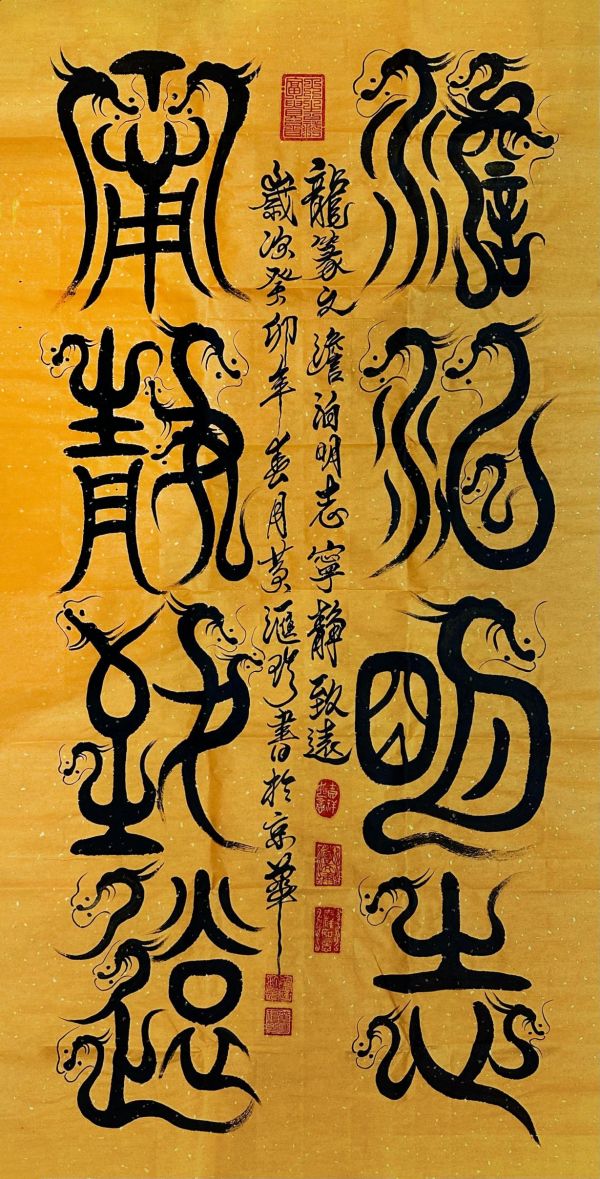 澹泊明志
龍篆文澹泊明志寧靜致遠
歲次癸卯年春月黃滙珍書於京華
甯靜致遠